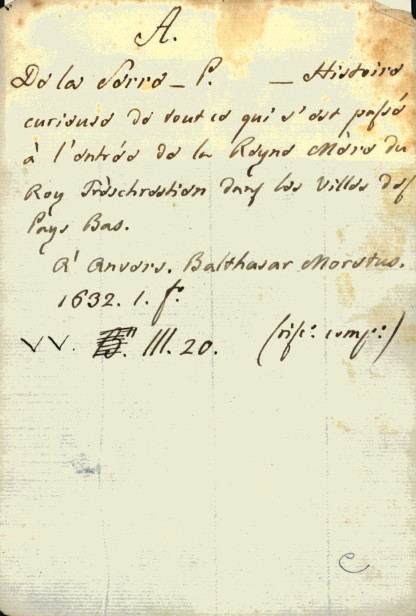 A.
De la Serre _ P. _ Histoire
curieuse de tout ce qui s'est passé
à l'entrée de la Reyne Mère du
Roy Trèschrestien dans les Villes des
Pays Bas.
A' Anvers. Balthasar Moretus.
1632. 1. fo.
VV. III. 20. (risc. comp.)